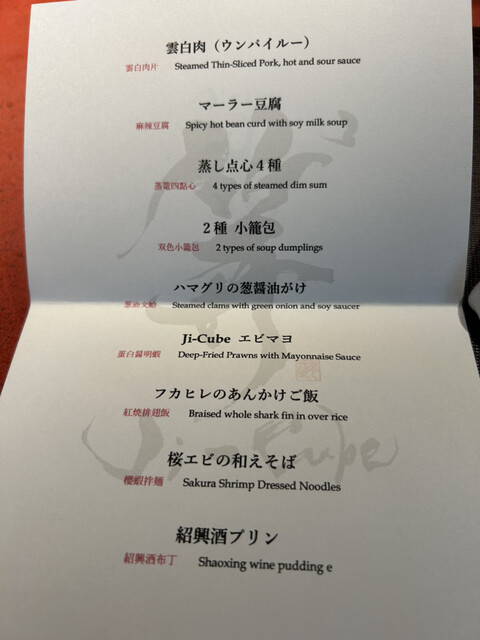 雲白肉（ウンパイルー）
雲白肉片 Steamed Thin-Sliced Pork, hot and sour sauce
マーラー豆腐
麻辣豆腐 Spicy hot bean curd with soy milk soup
蒸し点心４種
蒸籠四點心 4 types of steamed dim sum
２種 小籠包
双色小籠包 2 types of soup dumplings
ハマグリの葱醤油がけ
葱油文蛤 Steamed clams with green onion and soy saucer
Ji-Cube エビマヨ
蛋白醤明蝦 Deep-Fried Prawns with Mayonnaise Sauce
フカヒレのあんかけご飯
紅焼排翅飯 Braised whole shark fin in over rice
桜エビの和えそば
櫻蝦拌麺 Sakura Shrimp Dressed Noodles
紹興酒プリン
紹興酒布丁 Shaoxing wine pudding e
Ji-Cube